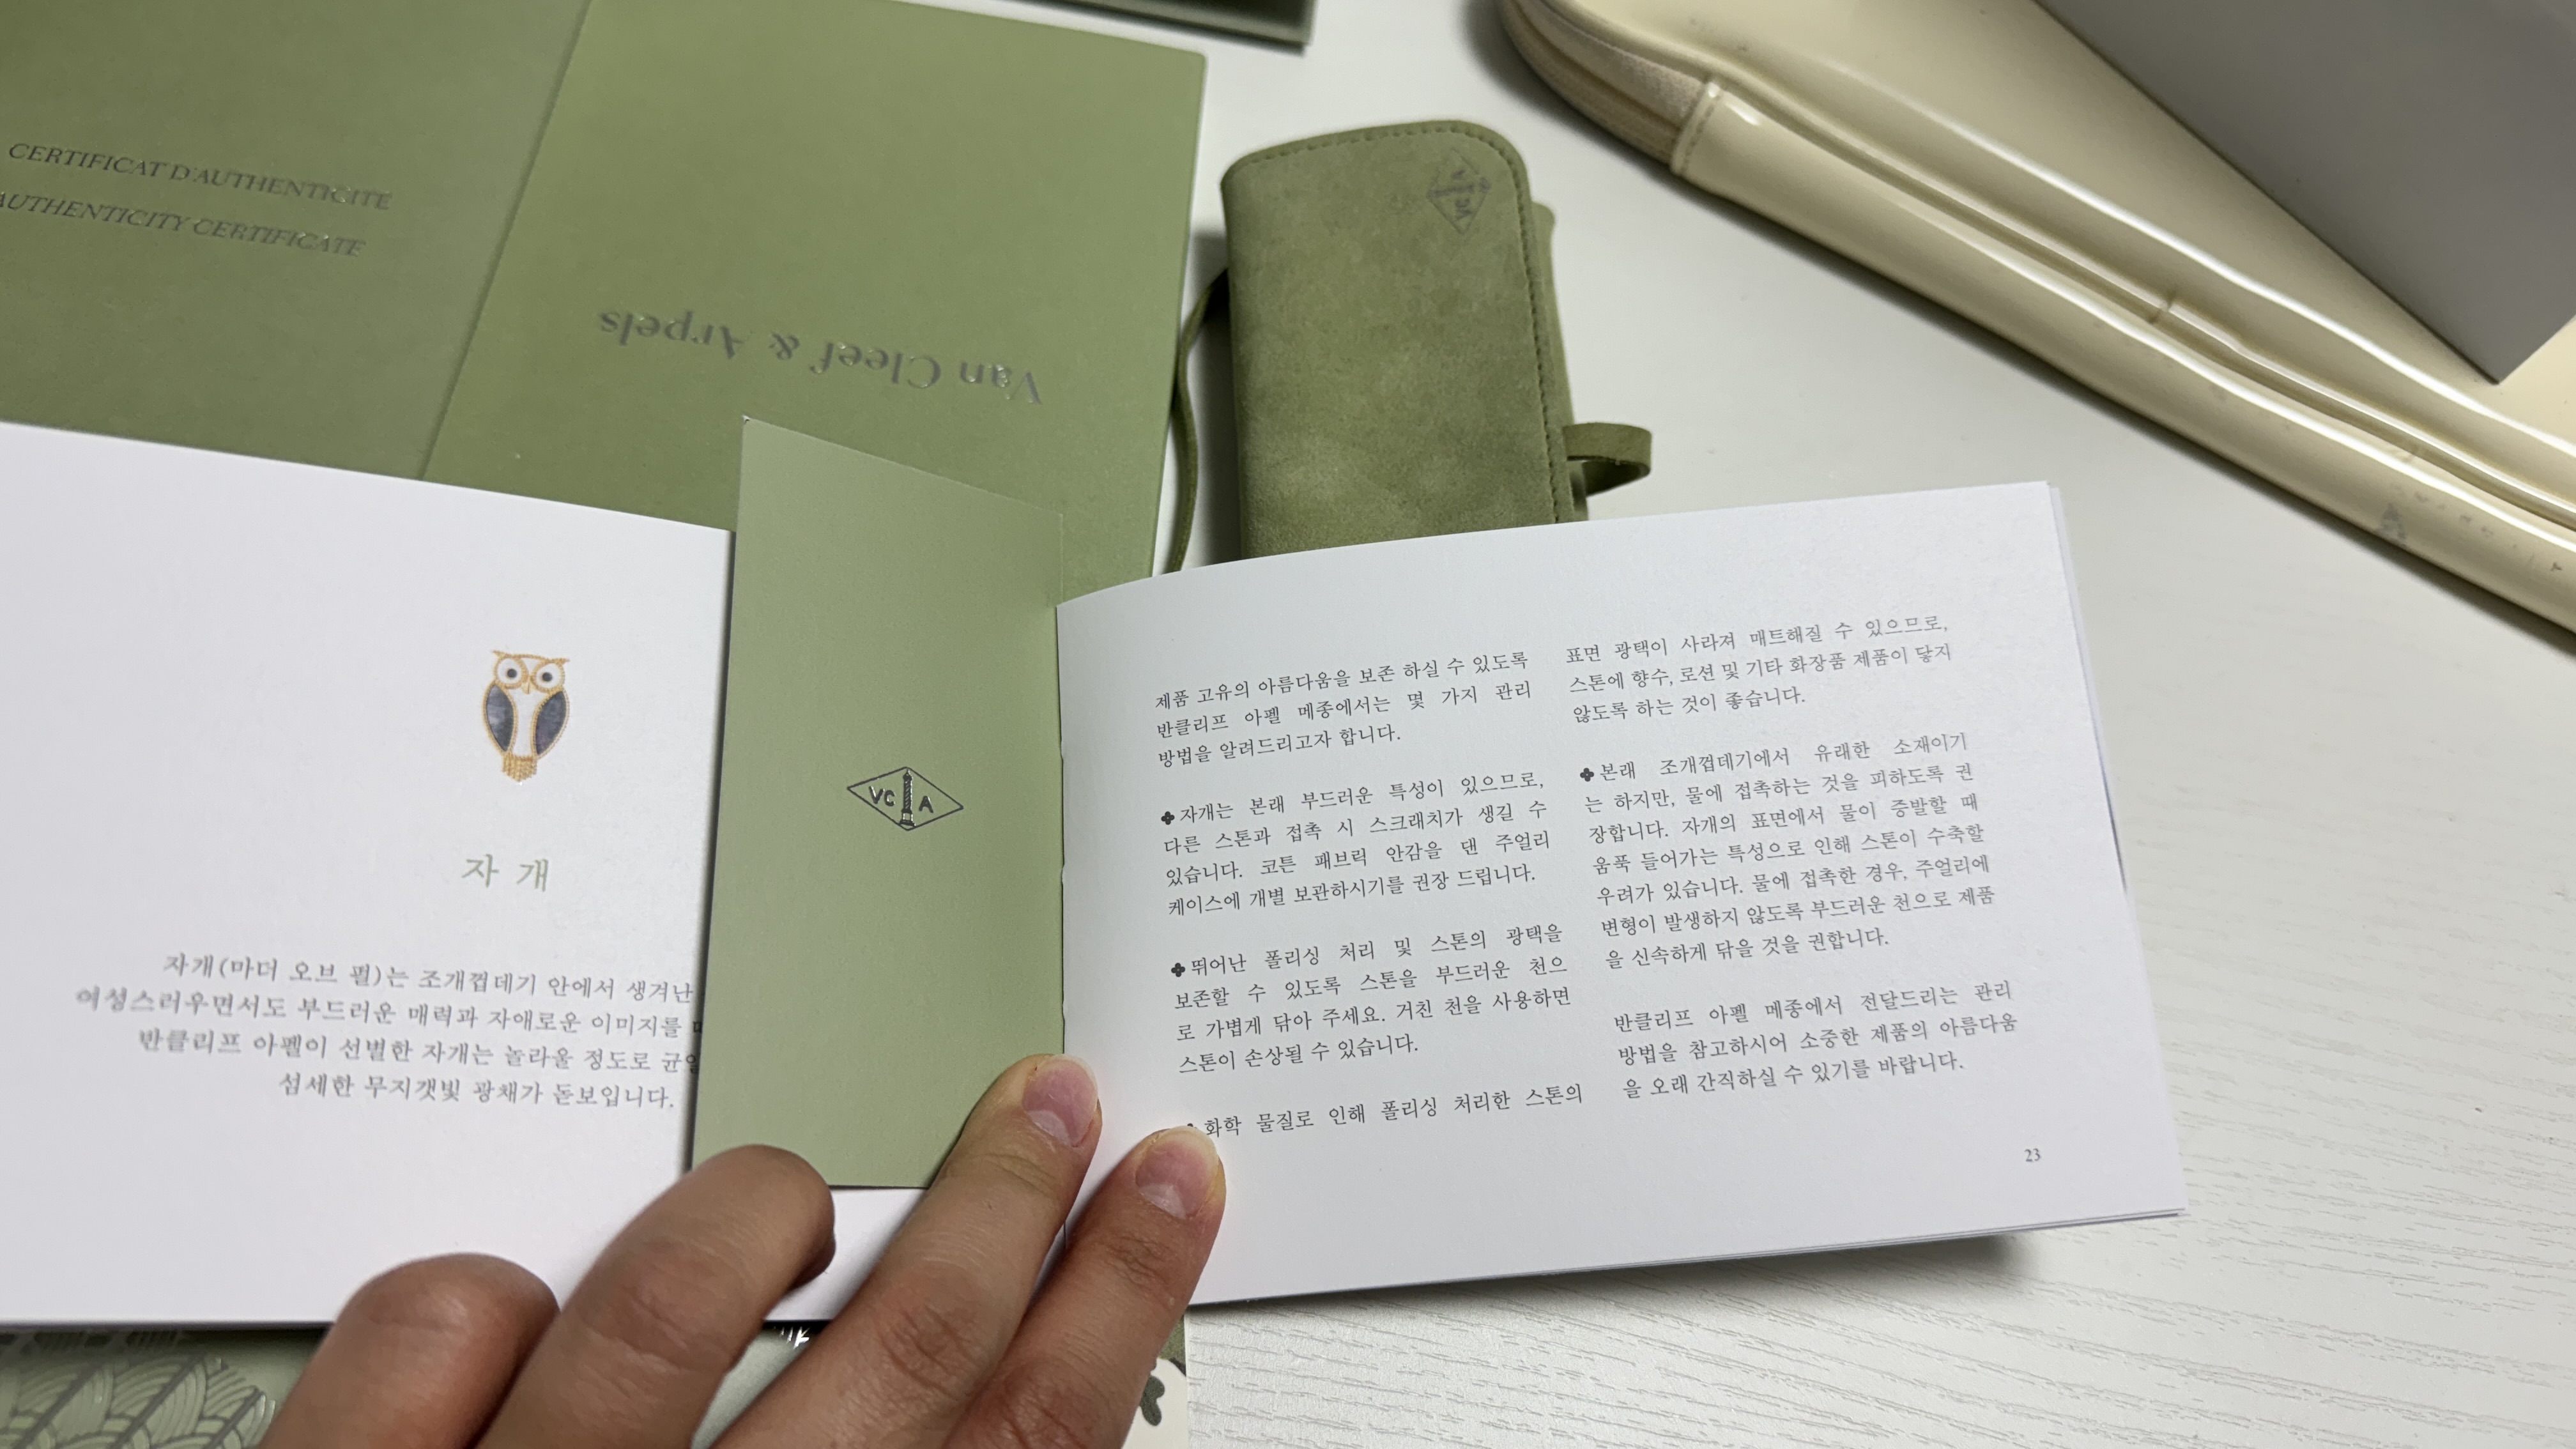 CERTIFICAT D'AUTHENTICITÉ
AUTHENTICITY CERTIFICATE
Van Cleef & Arpels
자개
자개(마더 오브 펄)는 조개껍데기 안에서 생겨난
여성스러우면서도 부드러운 매력과 자애로운 이미지를
반클리프 아펠이 선별한 자개는 놀라울 정도로
섬세한 무지갯빛 광채가 돋보입니다.
VC A
제품 고유의 아름다움을 보존 하실 수 있도록
반클리프 아펠 메종에서는 몇 가지 관리
방법을 알려드리고자 합니다.
✤자개는 본래 부드러운 특성이 있으므로,
다른 스톤과 접촉 시 스크래치가 생길 수
있습니다. 코튼 패브릭 안감을 댄 주얼리
케이스에 개별 보관하시기를 권장 드립니다.
✤뛰어난 폴리싱 처리 및 스톤의 광택을
보존할 수 있도록 스톤을 부드러운 천으
로 가볍게 닦아 주세요. 거친 천을 사용하면
스톤이 손상될 수 있습니다.
✤화학 물질로 인해 폴리싱 처리한 스톤의
표면 광택이 사라져 매트해질 수 있으므로,
스톤에 향수, 로션 및 기타 화장품 제품이 닿지
않도록 하는 것이 좋습니다.
✤본래 조개껍데기에서 유래한 소재이기
는 하지만, 물에 접촉하는 것을 피하도록 권
장합니다. 자개의 표면에서 물이 증발할 때
움푹 들어가는 특성으로 인해 스톤이 수축할
우려가 있습니다. 물에 접촉한 경우, 주얼리에
변형이 발생하지 않도록 부드러운 천으로 제품
을 신속하게 닦을 것을 권합니다.
반클리프 아펠 메종에서 전달드리는 관리
방법을 참고하시어 소중한 제품의 아름다움
을 오래 간직하실 수 있기를 바랍니다.
23